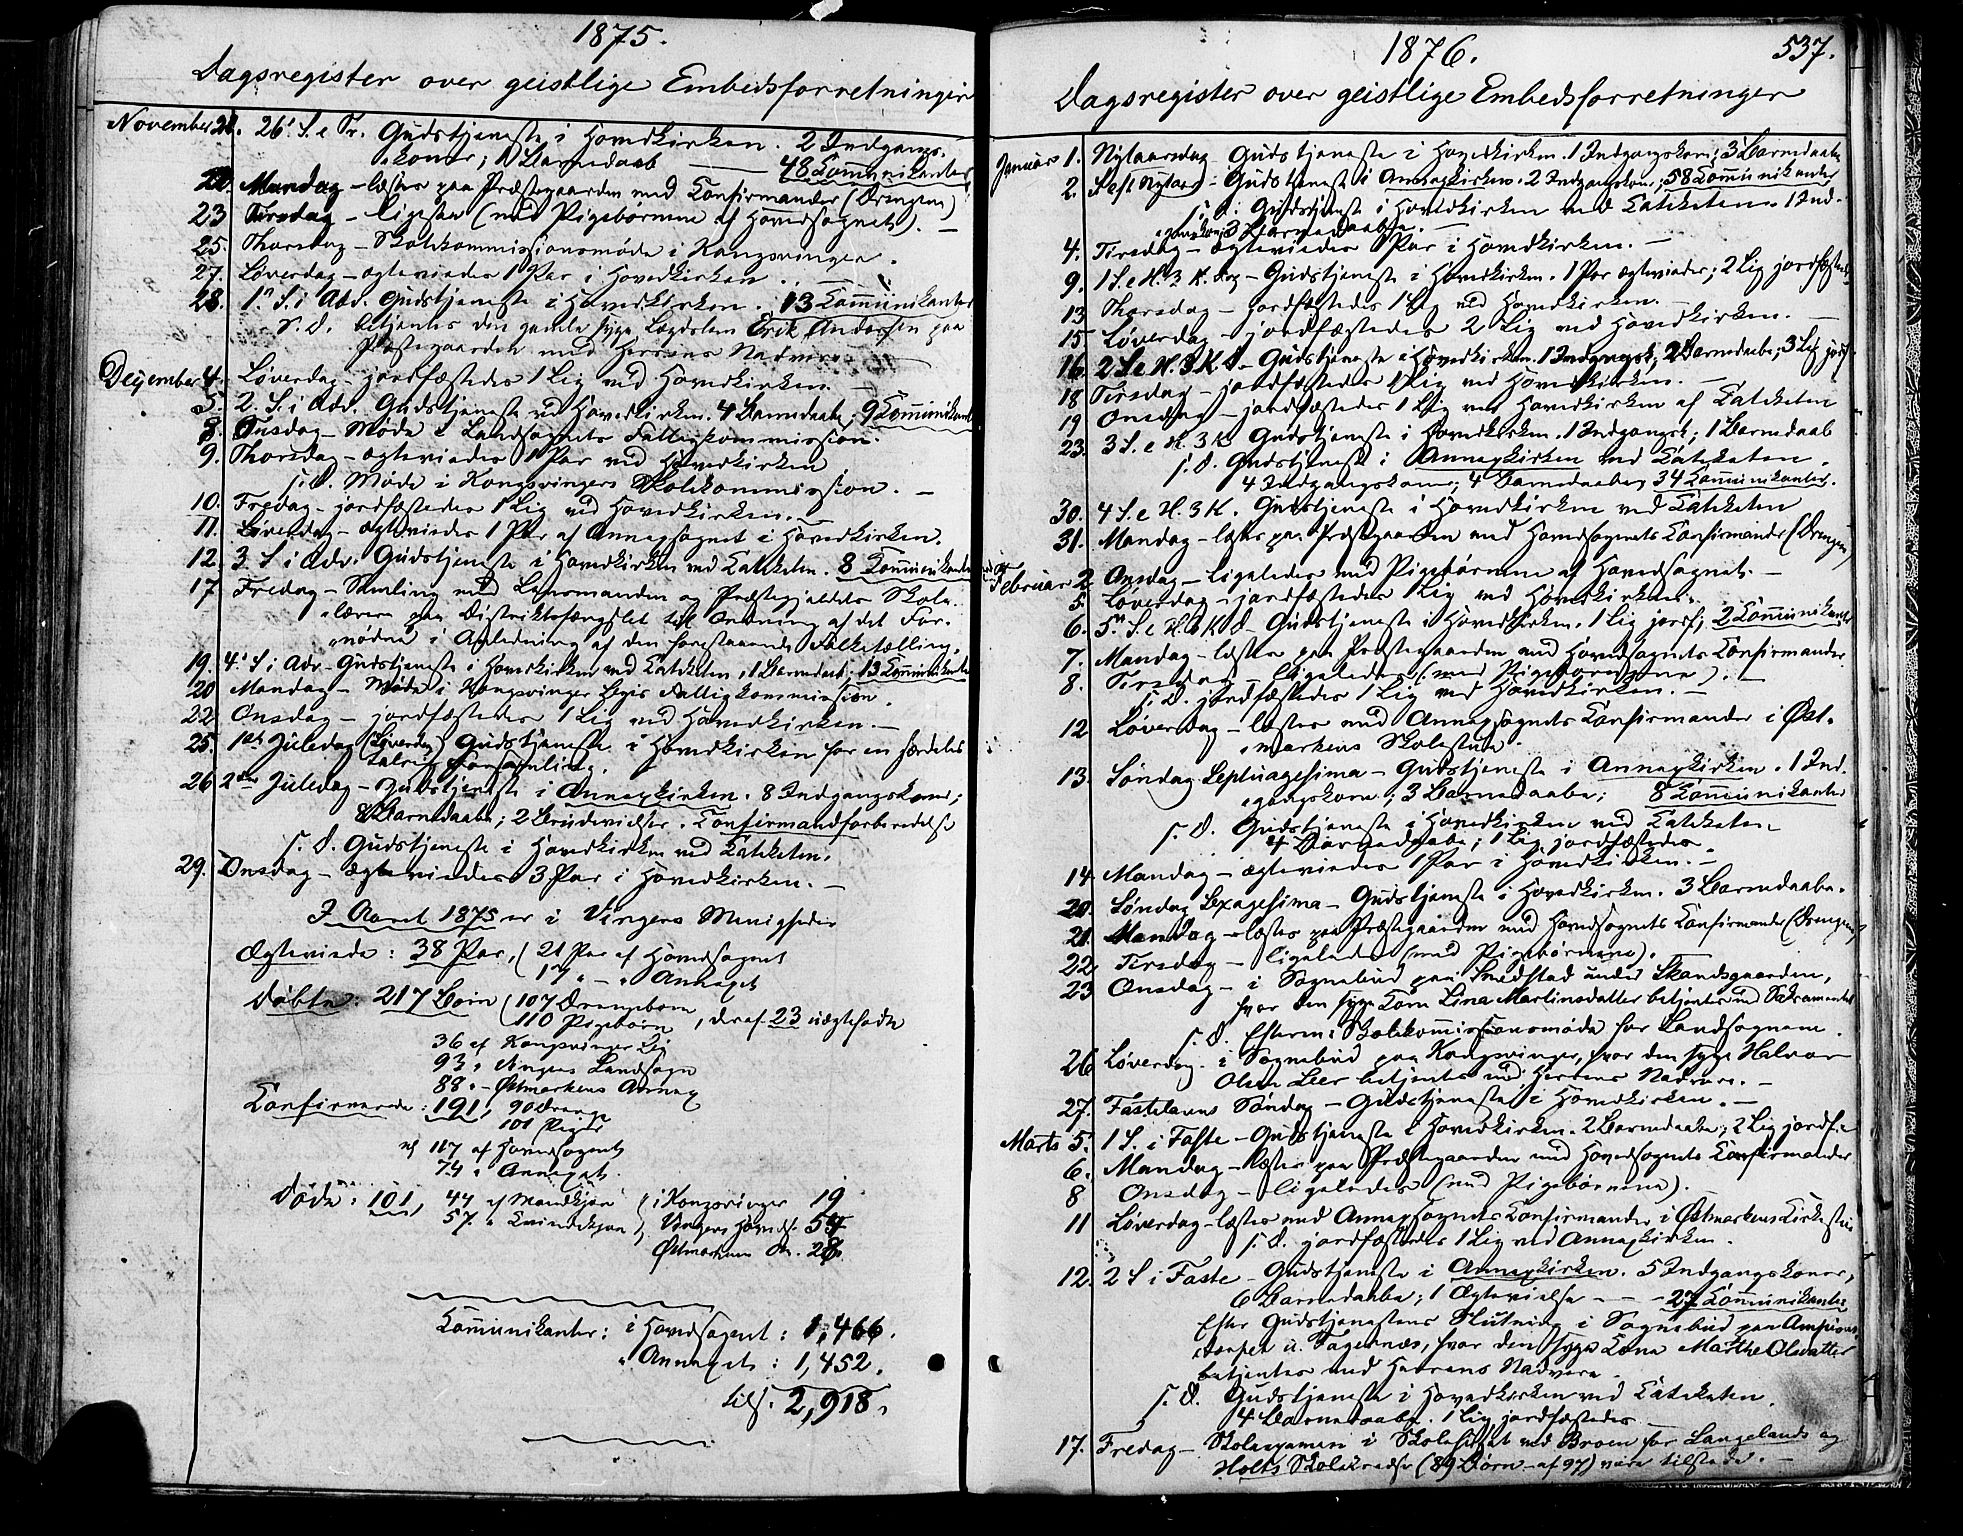 1875.
Dagsregister over geistlige Embedsforretninger
November 21. 26. S. e Tr. Gudstjeneste i Hovedkirken. 2 Indgangs-
koner; 1 Barnedaab — 48 Communikanter
22. Mandag – læstes paa Præstegaarden med Confirmander (Drengene)
23 Tirsdag – ligesaa (med Pigebørnene af Hovedsognet). –
25. Thorsdag – Skolekommissionsmøde i Kongsvinger.
27. Løverdag – ægteviedes 1 Par i Hovedkirken.
28. 1n S. i Adv. Gudstjeneste i Hovedkirken. 13 Communikanter
S. D. betjentes den gamle syge Lægdslem Erik Andersen paa
Præstegaarden med Herrens Nadvere.
Dezember 4. Løverdag – jordfæstedes 1 Lig ved Hovedkirken. –
5. 2. S. i Adv. Gudstjeneste ved Hovedkirken. 4 Barnedaabe; 9 Communikanter
8. Onsdag – Møde i Landsognets Fattigkommission.
9. Thorsdag – ægteviedes 1 Par ved Hovedkirken
S. D. Møde i Kongsvingers Skolekommission. –
10. Fredag – jordfæstedes 1 Lig ved Hovedkirken. –
11. Løverdag – ægteviedes 1 Par af Annexsognet i Hovedkirken.
12. 3 S. i Adv. Gudstjeneste i Hovedkirken ved Catecheten. 8 Communikanter
17 Fredag – Samling med Lensmanden og Præstegjeldets Skole-
lærere paa Distriktsfængslet til Ordning af det For-
nødne i Anledning af den forestaaende Folketælling.
19. 4. S. i Adv – Gudstjeneste i Hovedkirken ved Catecheten, 1 Barnedaab; 13 Communikanter
20 Mandag – Møde i Kongsvinger Byes Fattigkommission.
22 Onsdag – jordfæstedes 1 Lig ved Hovedkirken. –
25. 1ste Juledag (Løverdag) Gudstjeneste i Hovedkirken for en særdeles
talrig Forsamling.
26 2den Juledag – Gudstjeneste i Annexkirken. 8 Indgangskoner;
8 Barnedaabe; 2 Brudevielser. Confirmandforberedelse
S. D. Gudstjeneste i Hovedkirken ved Catecheten.
29. Onsdag – ægteviedes 3 Par i Hovedkirken. –
I Aaret 1875 er i Vingers Menigheder
Ægteviede: 38 Par, (21 Par af Hovedsognet
17 „ – „ Annexet
Døbte: 217 Børn (107 Drengebørn
110 Pigebørn, deraf 23 uægtefødte
36 af Kongsvinger By
93 „ Vingers Landsogn
88 „ – Østmarkens Annex
Confirmerede: 191, 90 Drenge
101 Piger
117 af Hovedsognet
74 „ Annexet.
Døde: 101, 44 af Mandkjøn i Kongsvinger 19
57. „ Qvindekjøn Vingers Hoveds. 54
Østmarkens An. 28.
Communikanter: i Hovedsognet: 1,466.
„ Annexet: 1,452.
tils. 2,918.
1876.
537.
Dagsregister over geistlige Embedsforretninger
Januar 1. Nytaarsdag – Gudstjeneste i Hovedkirken. 1 Indgangskone; 3 Barnedaabe
2. S. eft Nytaar – Gudstjeneste i Annexkirken. 2 Indgangskoner; 58 Communikanter
S. D. Gudstjeneste i Hovedkirken ved Catecheten. 1 Ind-
gangskone; 3 Barnedaabe. –
4. Tirsdag – ægteviedes 1 Par i Hovedkirken. –
9. 1 S. e H. 3 K. Dag – Gudstjeneste i Hovedkirken. 1 Par ægteviedes; 2 Lig jordfæstedes
13 Thorsdag – jordfæstedes 1 Lig ved Hovedkirken. –
15 Løverdag – jordfæstedes 2 Lig ved Hovedkirken. –
16. 2 S. e H. 3 K. D. – Gudstjeneste i Hovedkirken. 1 Indgangsk; 2 Barnedaabe; 3 Lig jordf.
18 Tirsdag – jordfæstedes 1 Lig ved Hovedkirken. –
19 Onsdag – jordfæstedes 1 Lig ved Hovedkirken af Catecheten
23. 3 S. e H. 3 K. Gudstjeneste i Hovedkirken. 1 Indgangsk; 1 Barnedaab
S. D. Gudstjeneste i Annexkirken ved Catecheten.
4 Indgangskoner; 4 Barnedaabe; 34 Communikanter.
30. 4 S. e H. 3 K. Gudstjeneste i Hovedkirken ved Catecheten
31. Mandag – læstes paa Præstegaarden med Hovedsognets Confirmander (Drengene)
Februar 2. Onsdag – ligeledes med Pigebørnene af Hovedsognet. –
5. Løverdag – jordfæstedes 1 Lig ved Hovedkirken.
6. 5n S. e H. 3 K D – Gudstjeneste i Hovedkirken. 1 Lig jordf; 2 Communikanter
7. Mandag – læstes paa Præstegaarden med Hovedsognets Confirmander
8. Tirsdag – ligeledes (med Pigebørnene). –
S. D. jordfæstedes 1 Lig ved Hovedkirken. –
12 Løverdag – læstes med Annexsognets Confirmander i Øst-
markens Skolestue.
13. Søndag Septuagesima – Gudstjeneste i Annexkirken. 1 Ind-
gangskone; 3 Barnedaabe; 8 Communikanter
S. D. Gudstjeneste i Hovedkirken ved Catecheten
4 Barnedaabe; 1 Lig jordfæstedes.
14. Mandag – ægteviedes 1 Par i Hovedkirken. –
20. Søndag Sexagesima – Gudstjeneste i Hovedkirken. 3 Barnedaabe.
21. Mandag – læstes paa Præstegaarden med Hovedsognets Confirmander (Drengene)
22 Tirsdag – ligeledes (med Pigebørnene).
23 Onsdag – i Sognebud paa Smedstad under Skandsgaarden,
hvor den syge Kone Lina Martinsdatter betjentes med Sakramentet
S. D. Efterm: Skolekommissionsmøde for Landsognene.
26 Løverdag. i Sognebud paa Kongsvinger, hvor den syge Halvor
Olsen Leer betjentes med Herrens Nadvere. –
27. Fastelavns Søndag – Gudstjeneste i Hovedkirken. –
Marts 5. 1 S. i Faste – Gudstjeneste i Hovedkirken. 2 Barnedaabe; 2 Lig jordf.
6. Mandag – læstes paa Præstegaarden med Hovedsognets Confirmander
8 Onsdag – ligeledes (med Pigebørnene). –
11 Løverdag – læstes med Annexsognets Confirmander i Østmarkens Kirkestue
S. D. jordfæstedes 1 Lig ved Annexkirken.
12. 2 S i Faste – Gudstjeneste i Annexkirken. 5 Indgangskoner,
6 Barnedaabe; 1 Ægtevielse – – – 27 Communikanter
Efter Gudstjenestens Slutning i Sognebud paa
u. Fagernæs, hvor den syge Kone Marthe Olsdatter
betjentes med Herrens Nadvere.
S. D. Gudstjeneste i Hovedkirken ved Catecheten.
4 Barnedaabe. 1 Lig jordfæstedes
17. Fredag – Skoleexamen i Skolehuset ved Broen for Langelands og
Holts Skolekredse (89 Børn af 97) vare tilstede. –